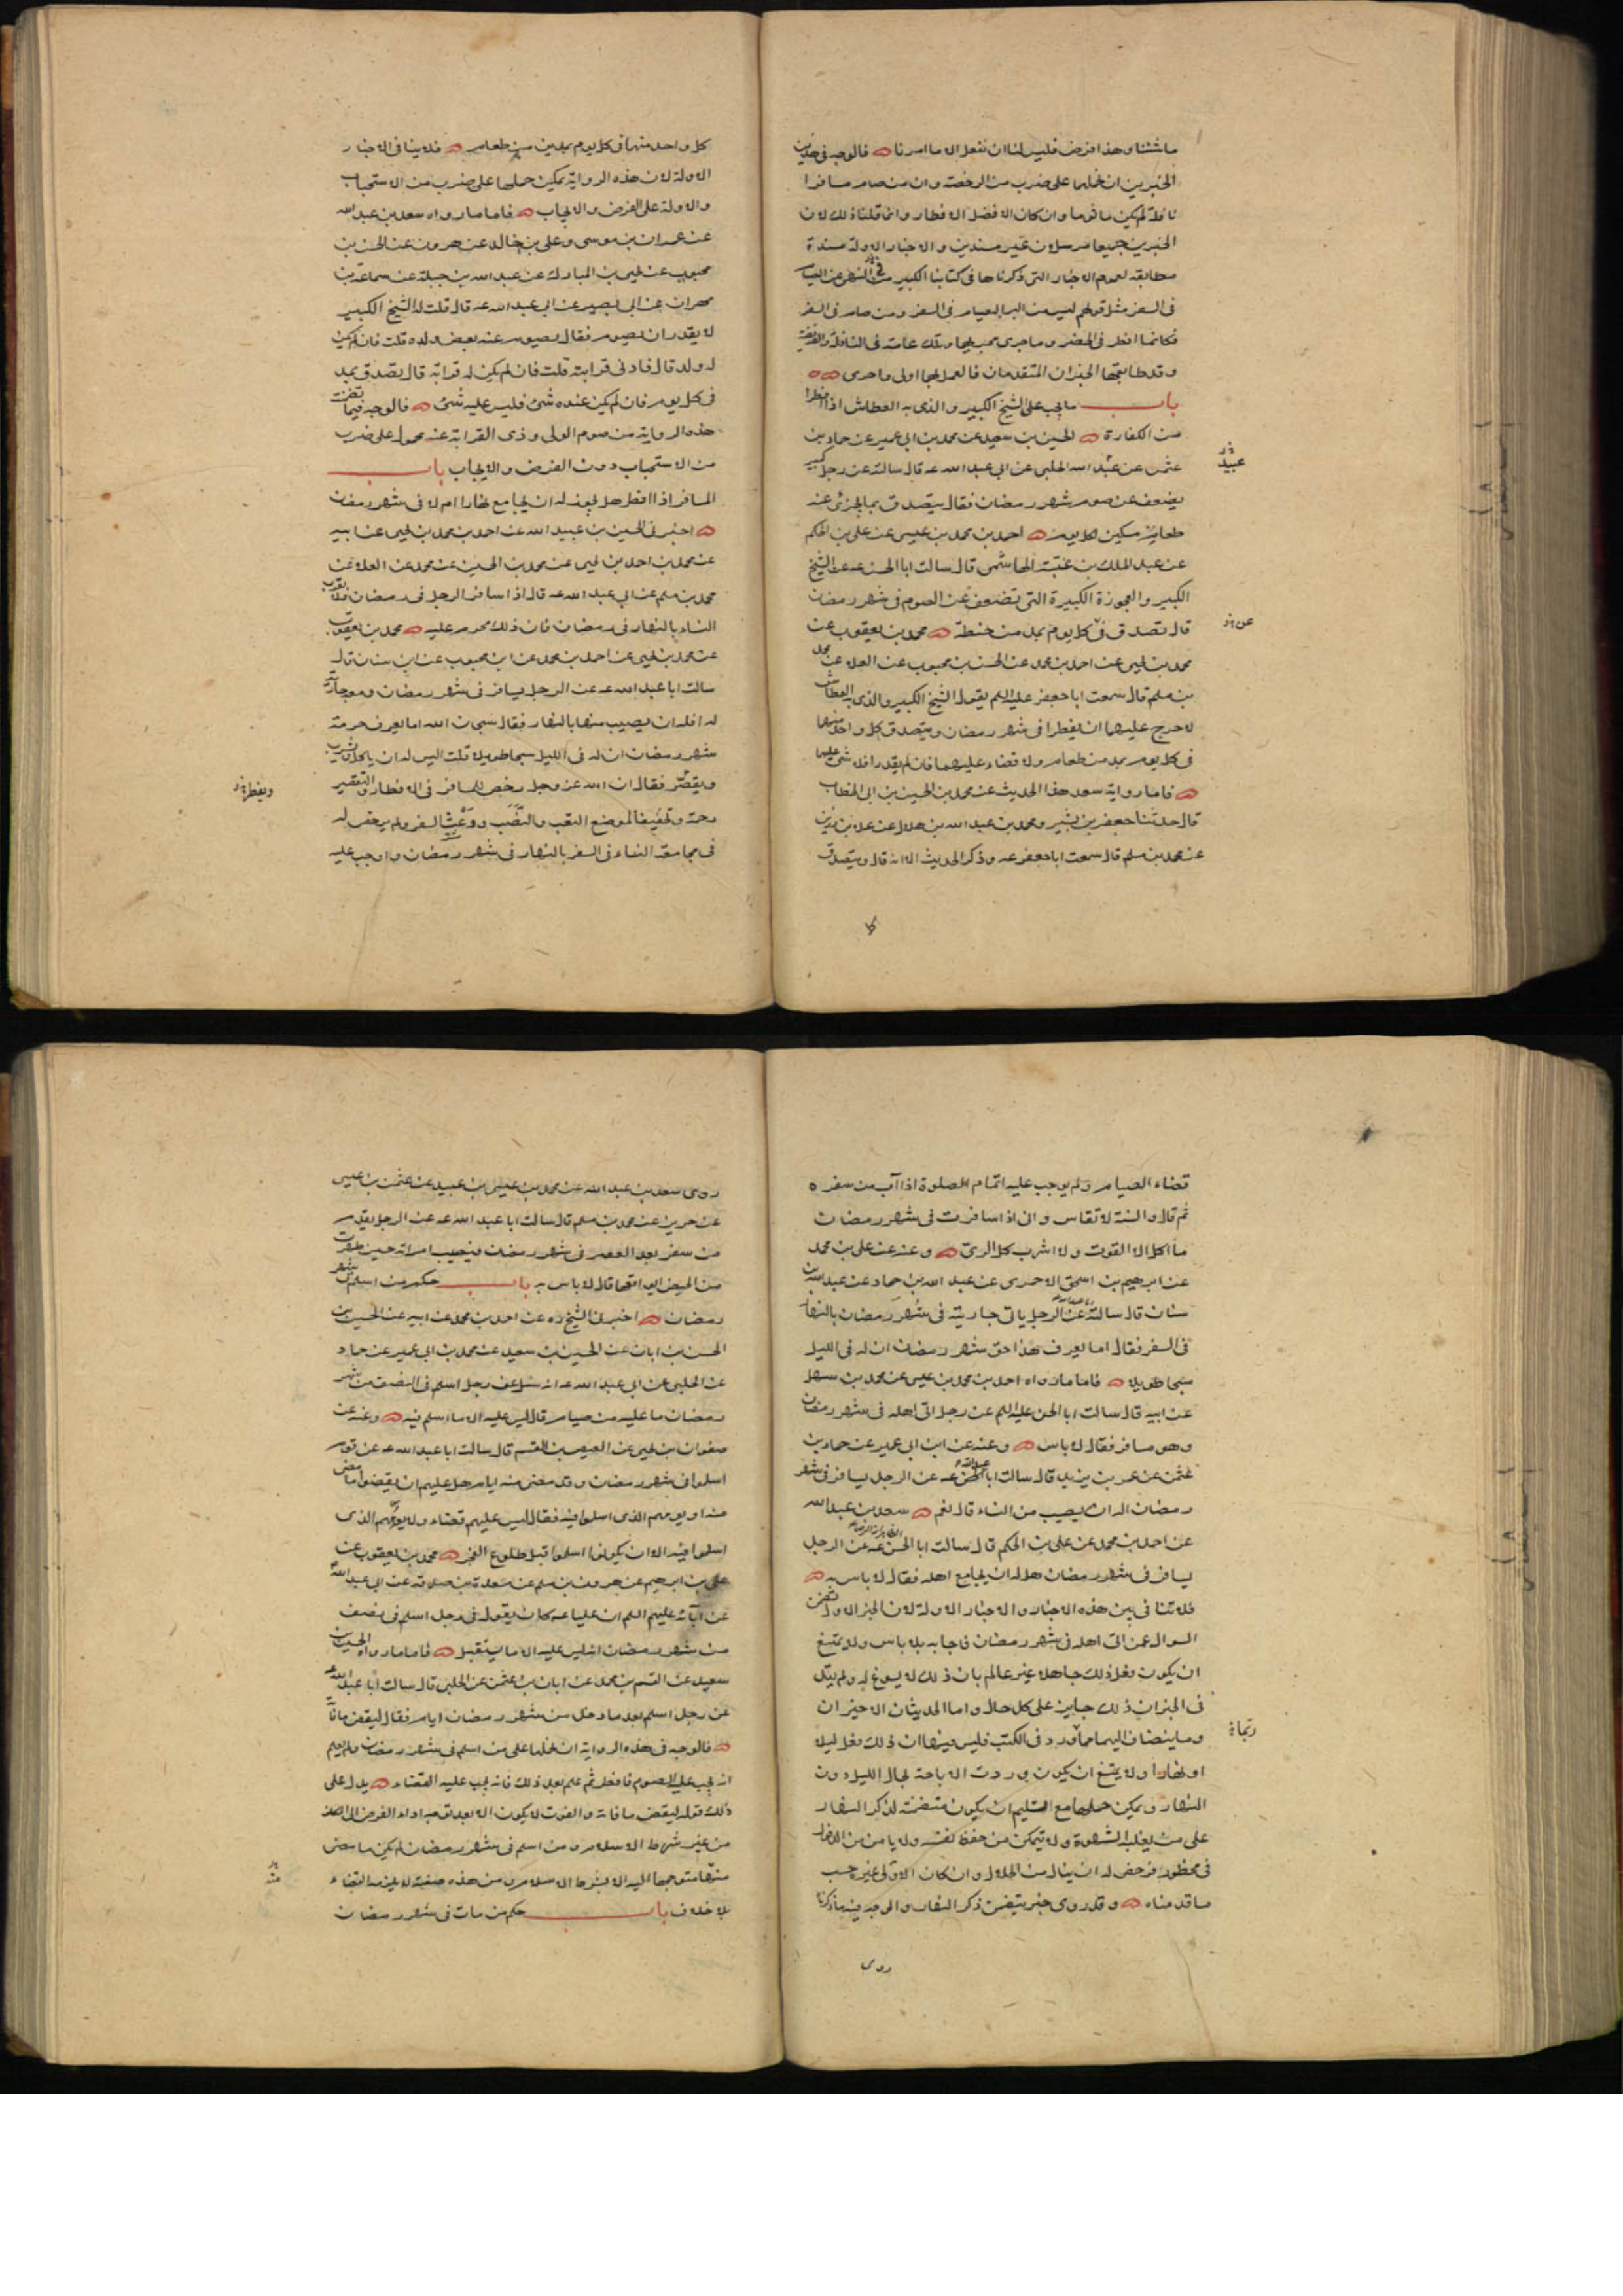 ما شئنا وهذا فرض فليس لنا ان نفعل الا ما امرنا فالوجه فى هذين
الخبرين ان نحملهما على ضرب من الرخصة وان من صام مسافرا
نافلة لم يكن ماثوما وان كان الافضل الافطار وانما قلنا ذلك لان
الخبرين جميعا مرسلان غير مسندين والاخبار الاولة مسندة
مطابقه لعموم الاخبار التى ذكرناها فى كتابنا الكبير من النهى عن الصيام
فى السفر مثل قولهم ليس من البر الصيام فى السفر ومن صام فى السفر
فكانما افطر فى الحضر وما جرى مجراها وتلك عامة فى النافلة والفريضة
وقد طابقها الخبران المتقدمان فالعمل بهما اولى واحرى
باب ما يجب على الشيخ الكبير والذى به العطاش اذا افطرا
من الكفارة الحسين بن سعيد عن محمد بن ابى عمير عن حماد بن
عثمن عن عبد الله الحلبى عن ابى عبد الله عه قال سالته عن رجل كبير
عبيد
يضعف عن صوم شهر رمضان فقال يتصدق بما يجزئ عنه
طعام مسكين لكل يوم احمد بن محمد بن عيسى عن على بن الحكم
عن عبد الملك بن عتبة الهاشمى قال سالت ابا الحسن عه عن الشيخ
الكبير والعجوزة الكبيرة التى تضعف عن الصوم فى شهر رمضان
قال تصدق فى كل يوم بمد من حنطة محمد بن يعقوب عن
عن
محمد بن يحيى عن احمد بن محمد عن الحسن بن محبوب عن العلا عن محمد
بن مسلم قال سمعت ابا جعفر عليه السلم يقول الشيخ الكبير والذى به العطاش
لا حرج عليهما ان يفطرا فى شهر رمضان ويتصدق كل واحد منهما
فى كل يوم بمد من طعام ولا قضاء عليهما فان لم يقدرا فلا شئ عليهما
فاما رواية سعد هذا الحديث عن محمد بن الحسين بن ابى الخطاب
قال حدثنا جعفر بن بشير ومحمد بن عبد الله بن هلال عن علا بن رزين
عن محمد بن مسلم قال سمعت ابا جعفر عه وذكر الحديث الا انه قال ويتصدق
كل
كل واحد منهما فى كل يوم بمدين من طعام فلا ينافى الاخبار
الاولة لان هذه الرواية يمكن حملها على ضرب من الاستحباب
والاولة على الفرض والايجاب فاما ما رواه سعد بن عبد الله
عن عمران بن موسى وعلى بن خالد عن هرون عن الحسن بن
محبوب عن يحيى بن المبارك عن عبد الله بن جبلة عن سماعة بن
مهران عن ابى بصير عن ابى عبد الله عه قال قلت له الشيخ الكبير
لا يقدر ان يصوم فقال يصوم عنه بعض ولده قلت فان لم يكن
له ولد قال فادنى قرابته قلت فان لم يكن له قرابة قال يتصدق بمد
فى كل يوم فان لم يكن عنده شئ فليس عليه شئ فالوجه فيما تضمنت
هذه الرواية من صوم الولى وذى القرابة عنه محمول على ضرب
من الاستحباب دون الفرض والايجاب باب
المسافر اذا افطر هل يجوز له ان يجامع نهارا ام لا فى شهر رمضان
اخبرنى الحسين بن عبيد الله عن احمد بن محمد بن يحيى عن ابيه
عن محمد بن احمد بن يحيى عن محمد بن الحسين عن محمد عن العلا عن
محمد بن مسلم عن ابى عبد الله عه قال اذا سافر الرجل فى رمضان فلا يقرب
النساء بالنهار فى رمضان فان ذلك محرم عليه محمد بن يعقوب
عن محمد بن يحيى عن احمد بن محمد عن ابن محبوب عن ابن سنان قال
سالت ابا عبد الله عه عن الرجل يسافر فى شهر رمضان ومعه جارية
له افله ان يصيب منها بالنهار فقال سبحان الله اما يعرف حرمة
شهر رمضان ان له فى الليل سبحا طويلا قلت اليس له ان ياكل ويشرب
ويقصر فقال ان الله عز وجل رخص للمسافر فى الافطار والتقصير
ويفطر
رحمة وتخفيفا لموضع التعب والنصب ووعث السفر ولم يرخص له
فى مجامعة النساء فى السفر بالنهار فى شهر رمضان واوجب عليه
قضاء الصيام ولم يوجب عليه اتمام الصلوة اذا آب من سفره
ثم قال والسنة لا تقاس وانى اذا سافرت فى شهر رمضان
ما اكل الا القوت ولا اشرب كل الرى وعنه عن على بن محمد
عن ابرهيم بن اسحق الاحمرى عن عبد الله بن حماد عن عبد الله بن
سنان قال سالته عن الرجل ياتى جاريته فى شهر رمضان بالنهار
فى السفر فقال اما يعرف هذا حق شهر رمضان ان له فى الليل
سبحا طويلا فاما ما رواه احمد بن محمد بن عيسى عن محمد بن سهل
عن ابيه قال سالت ابا الحسن عليه السلم عن رجل اتى اهله فى شهر رمضان
وهو مسافر فقال لا باس وعنه عن ابن ابى عمير عن حماد بن
عثمن عن عمر بن يزيد قال سالت ابا الحسن عه عن الرجل يسافر فى شهر
رمضان اله ان يصيب من النساء قال نعم سعد بن عبد الله
عن احمد بن محمد عن على بن الحكم قال سالت ابا الحسن عه عن الرجل
يسافر فى شهر رمضان هل له ان يجامع اهله فقال لا باس به
فلا تنافى بين هذه الاخبار والاخبار الاولة لان الخبر الاول تضمن
السوال عمن اتى اهله فى شهر رمضان فاجابه بلا باس ولا يمتنع
ان يكون فعل ذلك جاهلا غير عالم بان ذلك لا يسوغ له ولم يقل
فى الخبر ان ذلك جايز على كل حال واما الحديثان الاخيران
وما ينضاف اليهما مما ورد فى الكتب فليس فيها ان ذلك فعل ليلا
ربما
او نهارا ولا يمتنع ان يكون وردت الاباحة لحال الليل دون
النهار ويمكن حملها مع التسليم ان يكون متضمنة لذكر النهار
على من يغلبه الشهوة ولا يتمكن من حفظ نفسه ولا يامن من الدخول
فى محظور فرخص له ان ينال من الحلال وان كان الاولى غير حسب
ما قدمناه وقد روى خبر يتضمن ذكر النهار والوجه فيه ما ذكرنا
روى
روى سعد بن عبد الله عن محمد بن عيسى بن عبيد عن عثمن بن عيسى
عن حريز عن محمد بن مسلم قال سالت ابا عبد الله عه عن الرجل يقدم
من سفر بعد العصر فى شهر رمضان فيصيب امراته حين طهرت
من الحيض ايواقعها قال لا باس به باب حكم من اسلم فى شهر
رمضان اخبرنى الشيخ ره عن احمد بن محمد عن ابيه عن الحسين بن
الحسن بن ابان عن الحسين بن سعيد عن محمد بن ابى عمير عن حماد
عن الحلبى عن ابى عبد الله عه انه سئل عن رجل اسلم فى النصف من شهر
رمضان ما عليه من صيام قال ليس عليه الا ما اسلم فيه وعنه عن
صفوان بن يحيى عن العيص بن القسم قال سالت ابا عبد الله عه عن قوم
اسلموا فى شهر رمضان وقد مضى منه ايام هل عليهم ان يقضوا ما مضى
منه او يومهم الذى اسلموا فيه فقال ليس عليهم قضاء ولا يومهم الذى
اسلموا فيه الا ان يكونوا اسلموا قبل طلوع الفجر محمد بن يعقوب عن
على بن ابرهيم عن هرون بن مسلم عن مسعدة بن صدقه عن ابى عبد الله
عن آبائه عليهم السلم ان عليا عه كان يقول فى رجل اسلم فى نصف
من شهر رمضان انه ليس عليه الا ما يستقبل فاما ما رواه الحسين بن
سعيد عن القسم بن محمد عن ابان بن عثمن عن الحلبى قال سالت ابا عبد الله
عن رجل اسلم بعد ما دخل من شهر رمضان ايام فقال ليقض ما فاته
فالوجه فى هذه الرواية ان نحملها على من اسلم فى شهر رمضان ولم يعلم
انه يجب عليه الصوم فافطر ثم علم بعد ذلك فانه يجب عليه القضاء يدل على
ذلك قوله ليقض ما فاته والفوت لا يكون الا بعد توجه اداء الفرض الى المكلف
من غير شرط الاسلام ومن اسلم فى شهر رمضان لم يكن ما مضى
منها متوجها اليه الا بشرط الاسلام ومن هذه صفته لا يلزمه القضاء
منه
بلا خلاف باب حكم من مات فى شهر رمضان